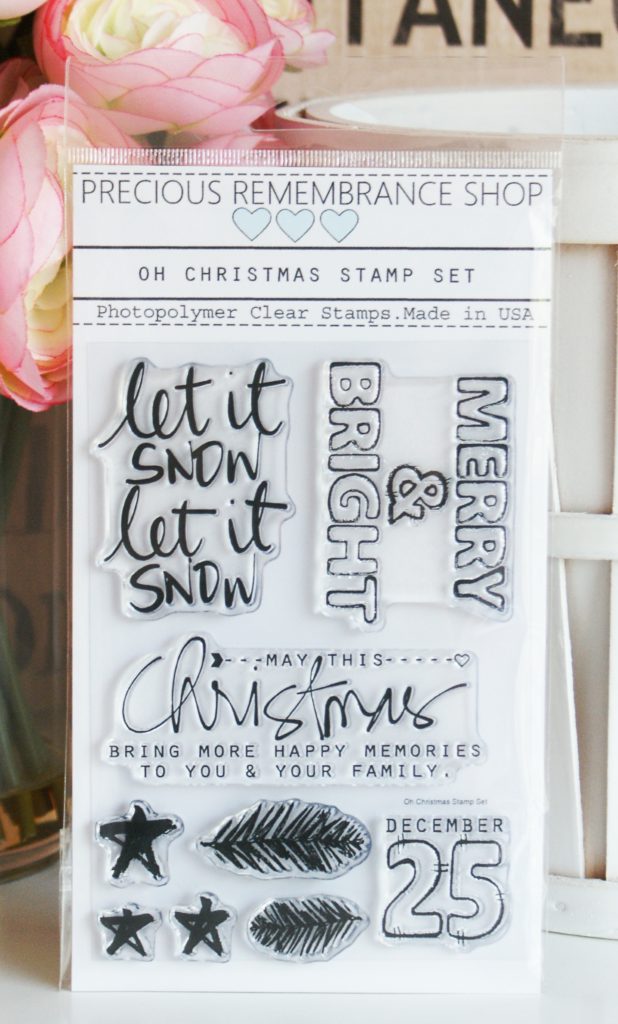 PRECIOUS REMEMBRANCE SHOP
OH CHRISTMAS STAMP SET
Photopolymer Clear Stamps.Made in USA
let it
SNOW
let it
SNOW
MERRY
&
BRIGHT
MAY THIS
Christmas
BRING MORE HAPPY MEMORIES
TO YOU & YOUR FAMILY.
Oh Christmas Stamp Set
DECEMBER
25